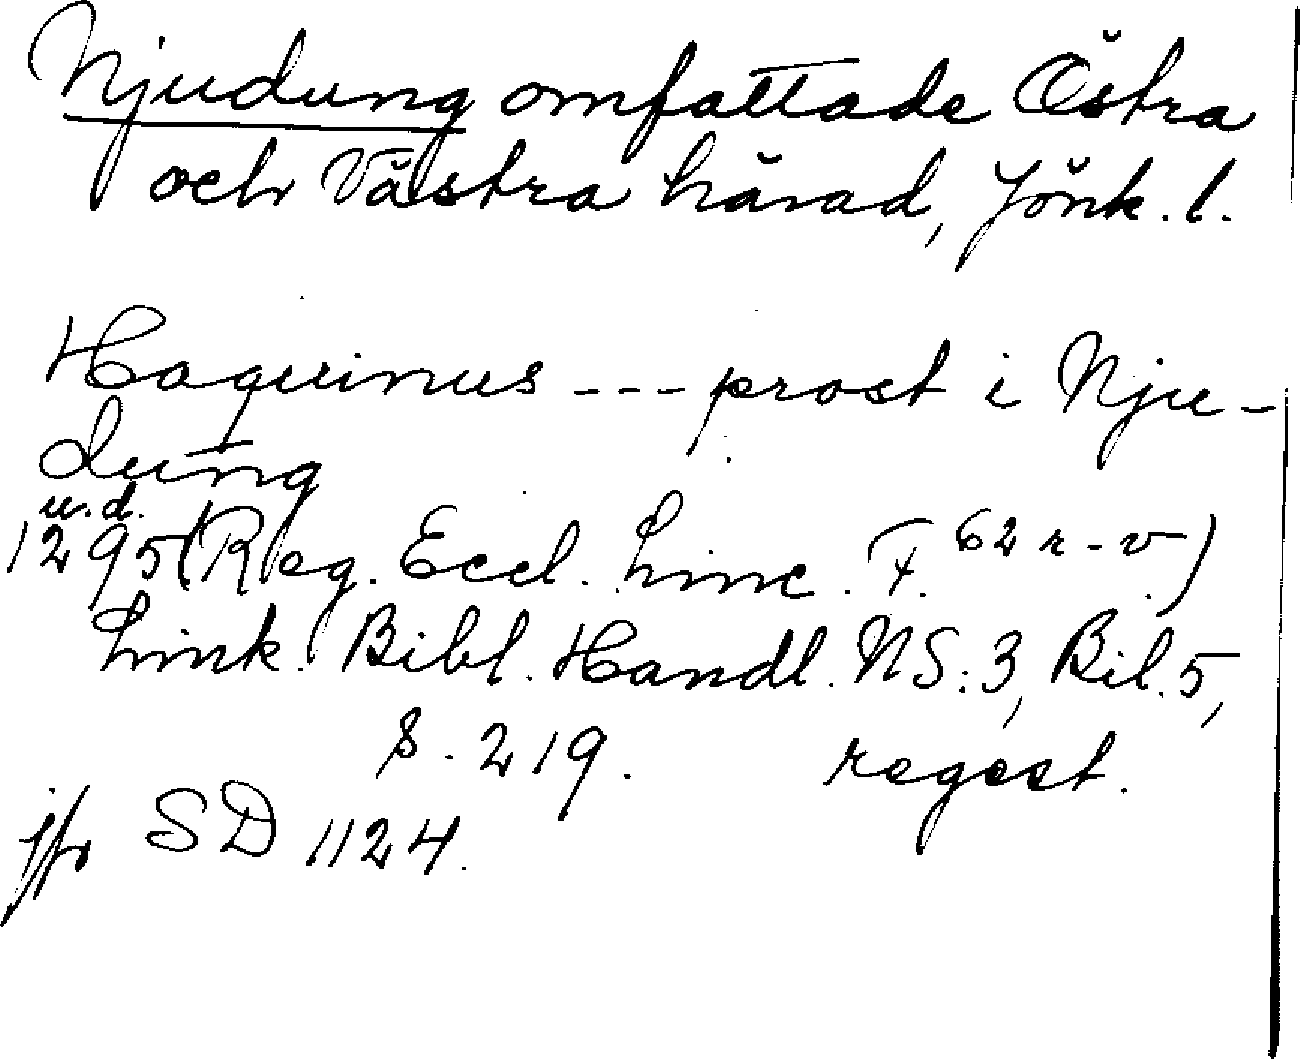 Njudung omfattade Östra
och Västra härad, Jönk. l.
Haquinus --- prost i Nju-
dung
u.d.
1295 (Reg. Eccl. Linc. F. 62 r-v)
Link. Bibl. Handl. NS:3, Bil. 5,
s. 219. regest.
jfr SD 1124.